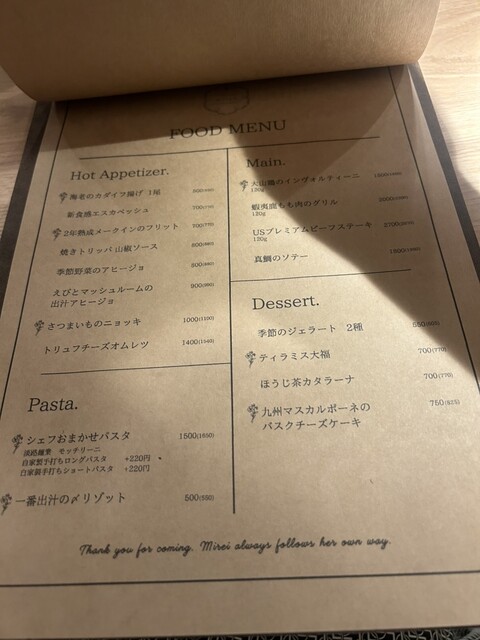 FOOD MENU
Hot Appetizer.
海老のカダイフ揚げ 1尾
新食感エスカベッシュ 700(770)
2年熟成メークインのフリット 700(770)
焼きトリッパ 山椒ソース 800(880)
季節野菜のアヒージョ 800(880)
えびとマッシュルームの
出汁アヒージョ 900(990)
さつまいものニョッキ 1000(1100)
トリュフチーズオムレツ 1400(1540)
Pasta.
シェフおまかせパスタ 1500(1650)
淡路麺業 モッチリーニ
自家製手打ちロングパスタ +220円
自家製手打ちショートパスタ +220円
一番出汁の〆リゾット 500(550)
Main.
大山鶏のインヴォルティーニ
120g
蝦夷鹿もも肉のグリル
120g
USプレミアムビーフステーキ
120g
真鯛のソテー
Dessert.
季節のジェラート 2種 550(605)
ティラミス大福 700(770)
ほうじ茶カタラーナ 700(770)
九州マスカルポーネの 750(825)
バスクチーズケーキ
Thank you for coming. Mirei always follows her own way.